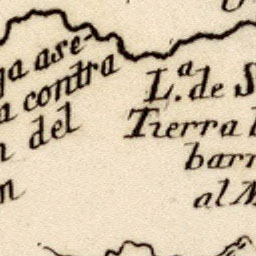 ga ase-
a contra
n del
n
L.ª de S
Tierra
barr
al M